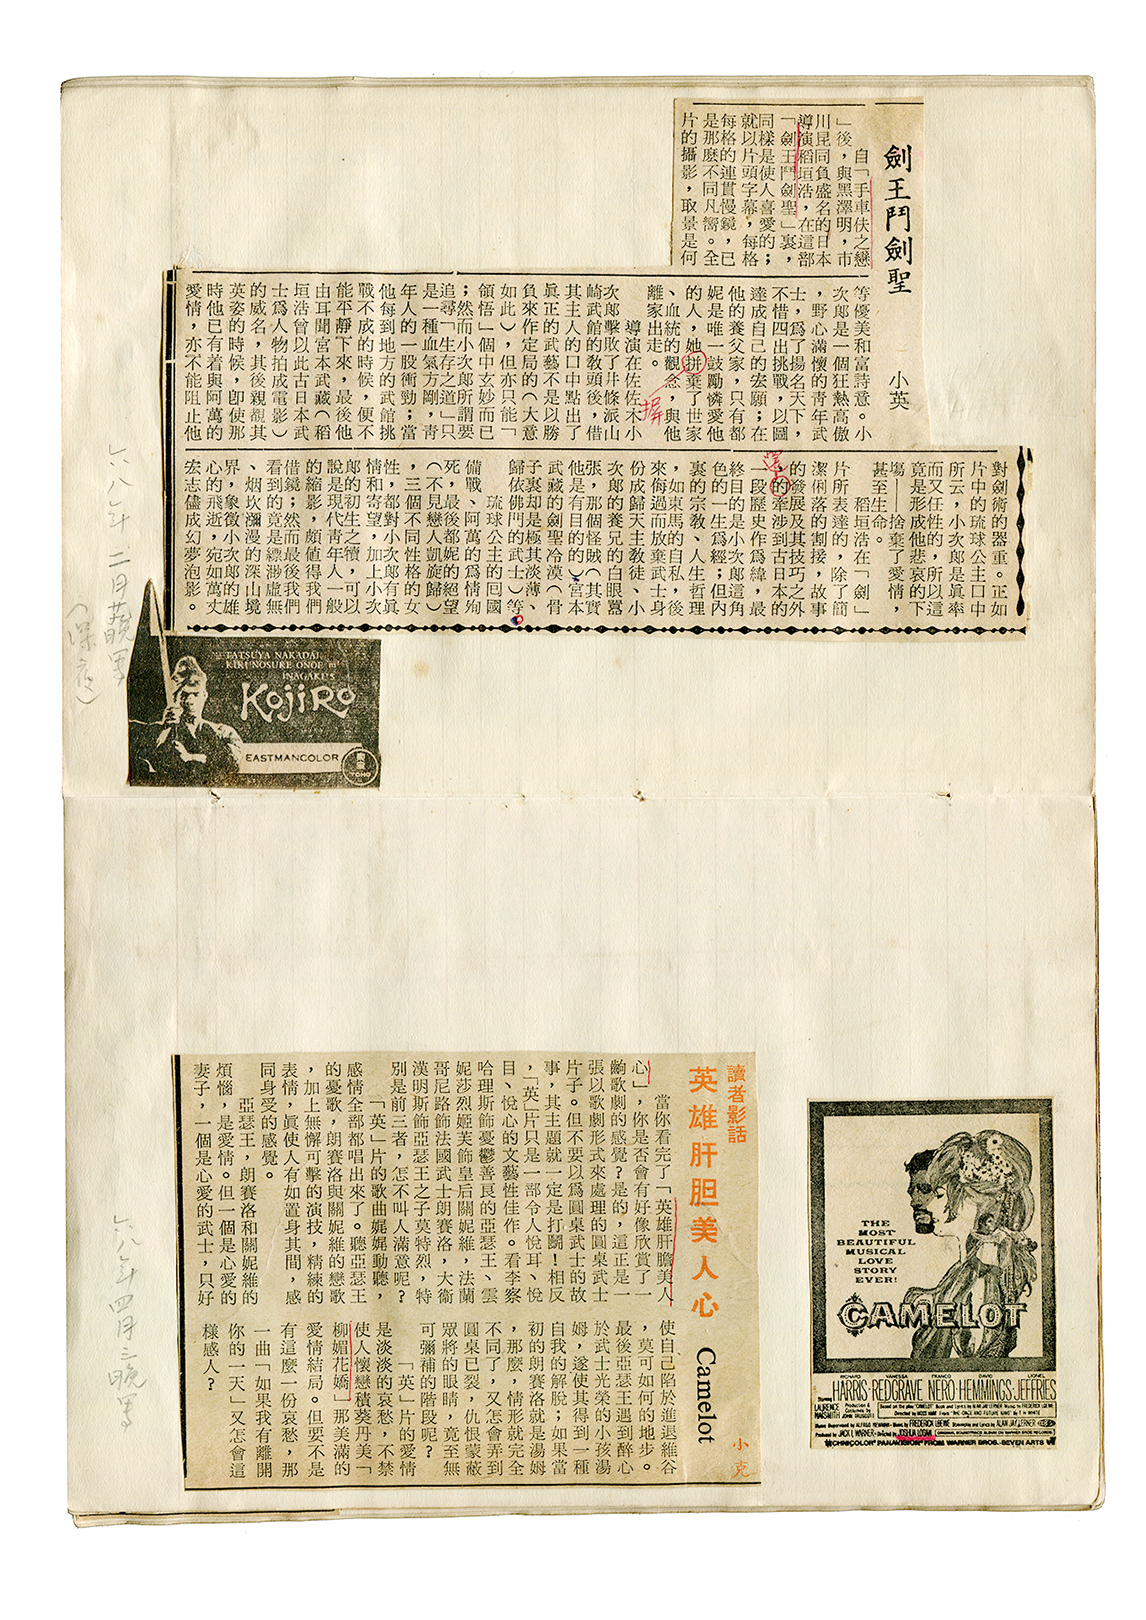 劍王鬥劍聖
小英
自「手車伕之戀
」後，與黑澤明，市
川昆同負盛名的日本
導演稻垣浩，在這部
「劍王鬥劍聖」裏，
同樣是使人喜愛的；
就以片頭字幕，每格
每格的連貫慢鏡，已
是那麼不同凡嚮。全
片的攝影，取景是何
等優美和富詩意。小
次郎是一個狂熱高傲
，野心滿懷的青年武
士，爲了揚名天下，
不惜四出挑戰，以圖
達成自己的宏願；在
他的養父家，只有都
妮是唯一鼓勵憐愛他
的人，她拼棄了世家
、血統的觀念，與他
離家出走。
摒
導演在佐佐木小
次郎擊敗了井條派山
崎武館的教頭後，借
其主人的口中點出了
眞正的武藝不是以勝
負來作定局的（大意
如此），但亦只能「
領悟」個中玄妙而已
；然而小次郎所謂要
追尋「生存之道」只
是一種血氣方剛，靑
年人的一股衝勁；當
他每到地方的武館挑
戰不成的時候，便不
能平靜下來，最後他
由耳聞宮本武藏（稻
垣浩曾以此古日本武
士爲人物拍成電影）
的威名，其後親觀其
英姿的時候，即使那
時他已有着與阿萬的
愛情，亦不能阻止他
對劍術的器重。正如
片中的琉球公主口中
所云，小次郎是眞率
而又任性的，所以這
竟是形成他悲哀的下
塲——捨棄了愛情，
甚至生命。
稻垣浩在「劍」
片所表達的，除了簡
潔俐落的割接，故事
的發展及其技巧之外
，的牽涉到古日本的
還
一段歷史作爲緯，最
終目的是小次郎這角
色的一生爲經；但內
裏的宗教、人生哲理
，如東馬的自私，後
來侮過而放棄武士身
份成歸天主教徒、小
次郎的養兄的白眼囂
張，那個怪賊（其實
他是有目的的）、宮本
武藏的劍聖冷漠（骨
子裏却是極其淡薄、
歸依佛門的武士）等。
琉球公主的囘國
備戰、阿萬的爲情殉
死，最後都妮的絕望
（不見戀人凱旋歸）
，三個不同性格的女
性，都對小次郎有眞
情和寄望，加上小次
郎的初生之犢，可以
說是現代靑年人一般
的縮影，頗値得我們
借鏡；然而最後我們
看到的竟是縹渺虛無
、烟坎瀰漫的深山境
界，象徵小次郎的雄
心的飛逝，宛如萬丈
宏志儘成幻夢泡影。
六八年二月
（深夜）
TATSUYA NAKADAI,
KIKUNOSUKE ONOE in
INAGAKI'S
KOJIRO
EASTMANCOLOR
TOHO
讀者影話
英雄肝胆美人心 Camelot
小克
當你看完了「英雄肝膽美人
心」，你是否會有好像欣賞了一
齣歌劇的感覺？是的，這正是一
張以歌劇形式來處理的圓桌武士
片子。但不要以爲圓桌武士的故
事，其主題就一定是打鬪！相反
，「英」片只是一部令人悅耳、悅
目、悅心的文藝性佳作。看李察
哈理斯飾憂鬱善良的亞瑟王、雲
妮莎烈姬芙飾皇后關妮維，法蘭
哥尼路飾法國武士朗賽洛，大衞
漢明斯飾亞瑟王之子莫特烈，特
別是前三者，怎不叫人滿意呢？
「英」片的歌曲娓娓動聽，
感情全部都唱出來了。聽亞瑟王
的憂歌，朗賽洛與關妮維的戀歌
，加上無懈可擊的演技，精練的
表情，眞使人有如置身其間，感
同身受的感覺。
亞瑟王，朗賽洛和關妮維的
煩惱，是愛情。但一個是心愛的
妻子，一個是心愛的武士，只好
使自己陷於進退維谷
，莫可如何的地步。
最後亞瑟王遇到醉心
於武士光榮的小孩湯
姆，遂使其得到一種
自我的解脫；如果當
初的朗賽洛就是湯姆
，那麼，情形就完全
不同了，又怎會弄到
圓桌已裂，仇恨蒙蔽
眾將的眼睛，竟至無
可彌補的階段呢？
「英」片的愛情
是淡淡的哀愁，不禁
使人懷戀積葵丹美「
柳媚花嬌」那美滿的
愛情結局。但要不是
有這麼一份哀愁，那
一曲「如果我有離開
你的一天」又怎會這
樣感人？
六八年四月三晚寫
THE
MOST
BEAUTIFUL
MUSICAL
LOVE
STORY
EVER!
CAMELOT
RICHARD HARRIS · VANESSA REDGRAVE · FRANCO NERO · DAVID HEMMINGS · LIONEL JEFFRIES
LAURENCE NAISMITH
Music by FREDERICK LOEWE
ALAN JAY LERNER
Produced by JACK L. WARNER · Directed by JOSHUA LOGAN
TECHNICOLOR PANAVISION FROM WARNER BROS.-SEVEN ARTS